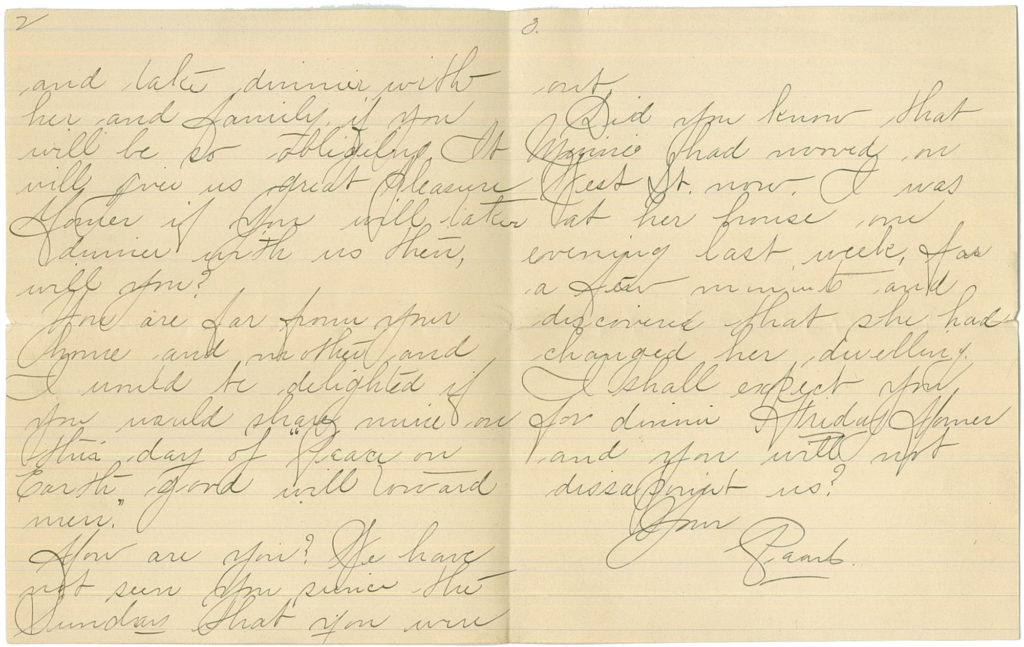 2
and take dinner with
her and family, if you
will be so obliging. It
will give us great pleasure
Homer if you will take
dinner with us then,
will you?
You are far from your
home and mother and
I would be delighted if
you would share mine on
this day of "Peace on
Earth good will toward
men."
How are you? We have
not seen you since the
Sunday that you were
3.
out.
Did you know that
Minnie had moved on
West St. now. I was
at her house one
evening last week, for
a few minuts and
discovered that she had
changed her dwelling.
I shall expect you
for dinner Homer
and you will not
dissapoint us?
Your
Pearl.